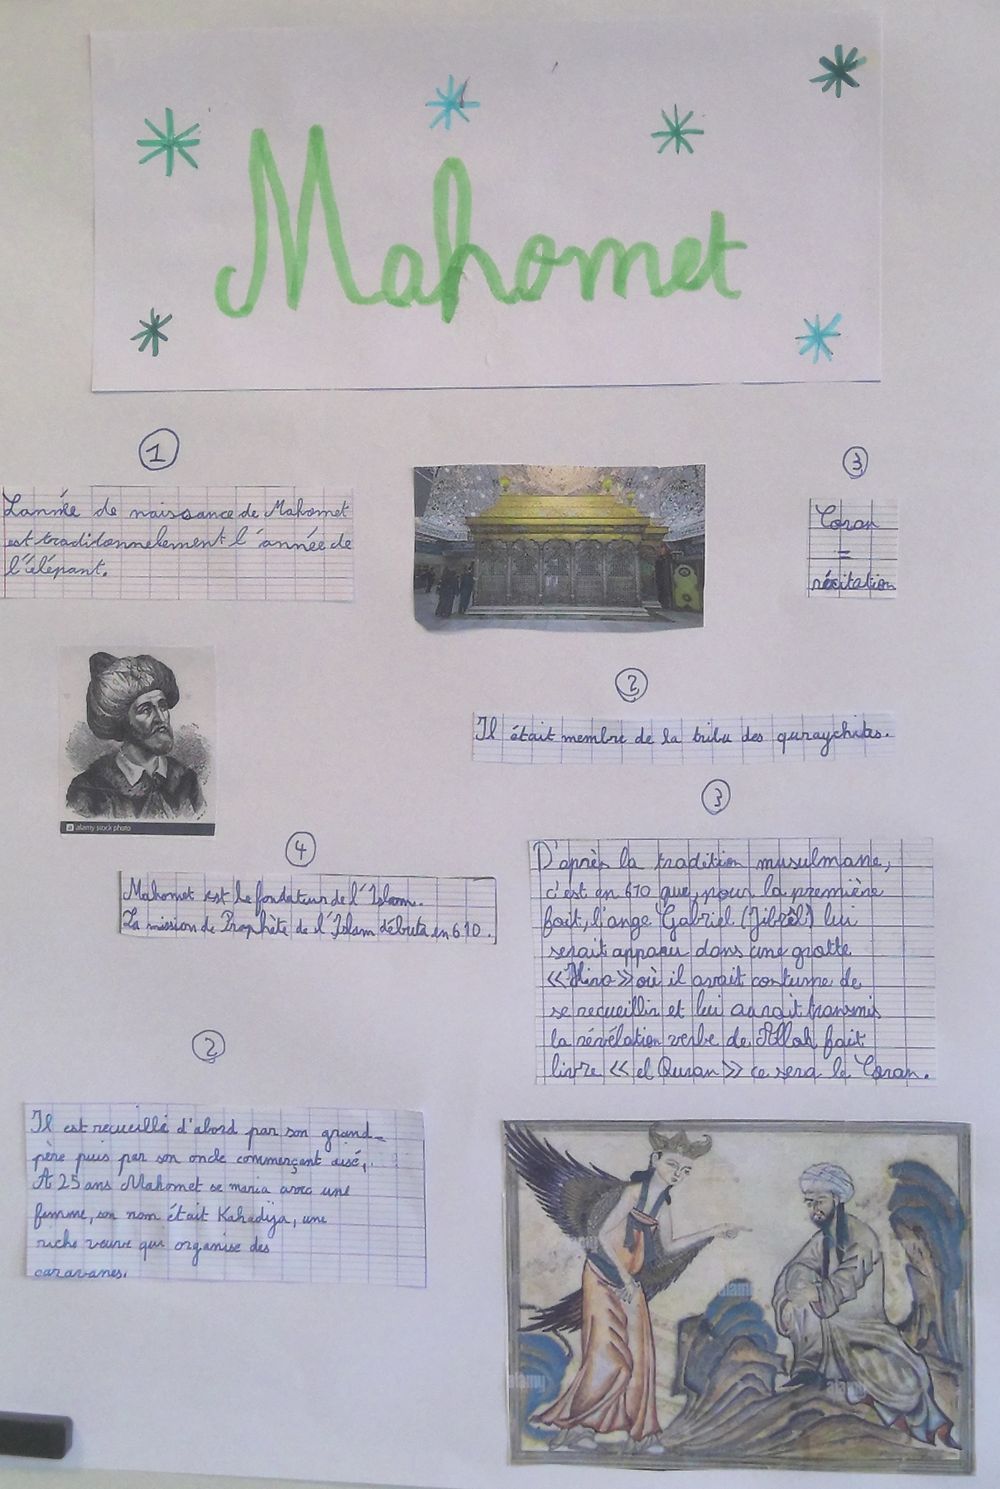 Mahomet
1
L'année de naissance de Mahomet
est traditonnelement l'année de
l'élépant.
3
Coran
=
récitation
alamy stock photo
2
Il était membre de la tribu des quraychites.
3
D'après la tradition musulmane,
c'est en 610 que, pour la première
foit, l'ange Gabriel (Jibrêl) lui
serait apparu dans une grotte
«Hira» où il avait coutume de
se recueillir et lui aurait transmis
la révélation verbe de Allah fait
livre « el Quran » ce sera le Coran.
4
Mahomet est le fondateur de l'Islam.
La mission de Prophète de l'Islam débuta en 610.
2
Il est recueilli d'abord par son grand-
père puis par son oncle commerçant aisé,
A 25 ans Mahomet se maria avec une
femme, son nom était Kahadija, une
riche veuve qui organise des
caravanes.
alamy
alamy
alamy